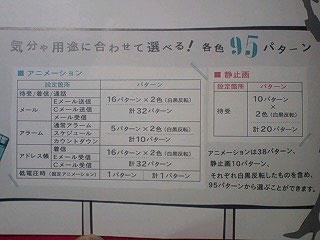 気分や用途に合わせて選べる! 各色95パターン
■アニメーション
設定箇所 パターン
待受/着信/通話
メール Eメール送信 16パターン×2色(白黒反転)
Cメール送信 計32パターン
Eメール受信
Cメール受信
アラーム 通常アラーム 5パターン×2色(白黒反転)
スケジュール 計10パターン
カウントダウン
アドレス帳 着信 16パターン×2色(白黒反転)
Eメール受信 計32パターン
Cメール受信
低電圧時(固定アニメーション) 1パターン 計1パターン
■静止画
設定箇所 パターン
待受 10パターン
×
2色(白黒反転)
計20パターン
アニメーションは38パターン、
静止画10パターン。
それぞれ白黒反転したものを含め、
95パターンから選ぶことができます。